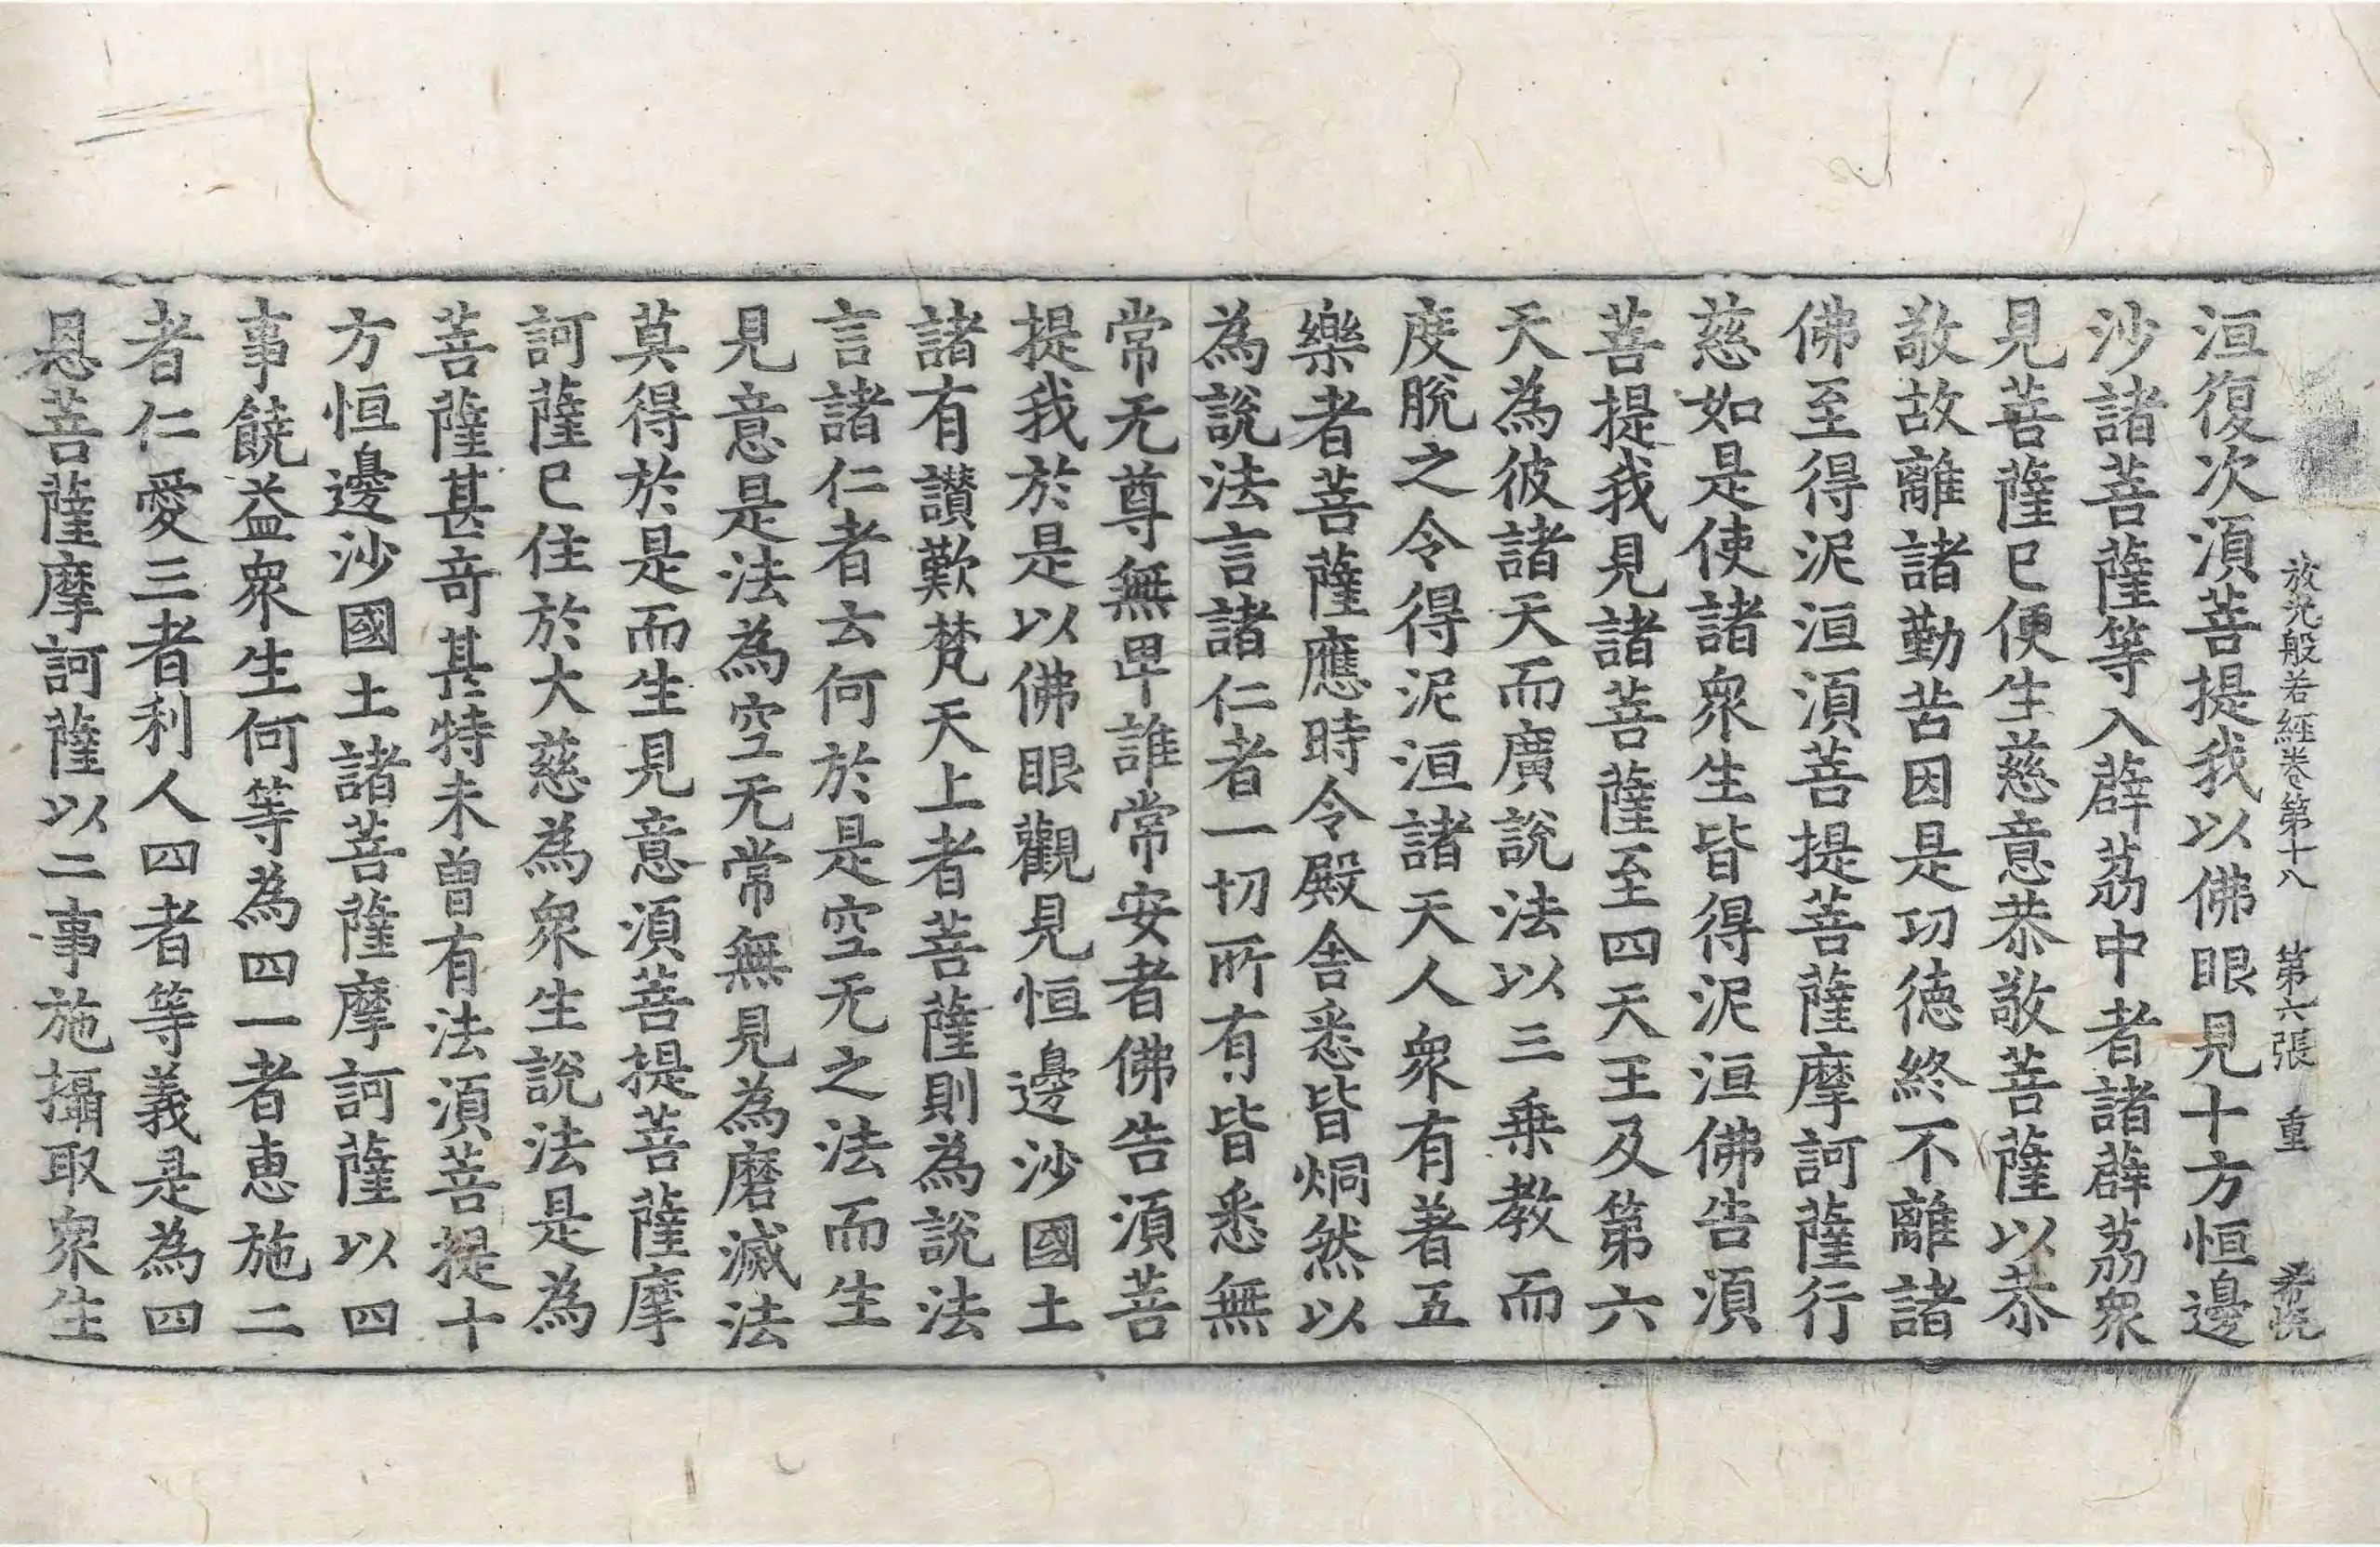 放光般若經卷第十八 第六張 重
洹復次湏菩提我以佛眼見十方恒邊
沙諸菩薩等入薜荔中者諸薜荔衆
見菩薩已便生慈意恭敬菩薩以恭
敬故離諸勤苦因是功德終不離諸
佛至得泥洹湏菩提菩薩摩訶薩行
慈如是使諸衆生皆得泥洹佛告湏
菩提我見諸菩薩至四天王及第六
天為彼諸天而廣說法以三乗教而
度脫之令得泥洹諸天人衆有著五
樂者菩薩應時令殿舍悉皆烔然以
為說法言諸仁者一切所有皆悉無
常无尊無卑誰常安者佛告湏菩
提我於是以佛眼觀見恒邊沙國土
諸有讃歎梵天上者菩薩則為說法
言諸仁者云何於是空无之法而生
見意是法為空无常無見為磨滅法
莫得於是而生見意湏菩提菩薩摩
訶薩已住於大慈為衆生說法是為
菩薩甚竒甚特未曽有法湏菩提十
方恒邊沙國土諸菩薩摩訶薩以四
事饒益衆生何等為四一者恵施二
者仁愛三者利人四者等義是為四
恩菩薩摩訶薩以二事施攝取衆生